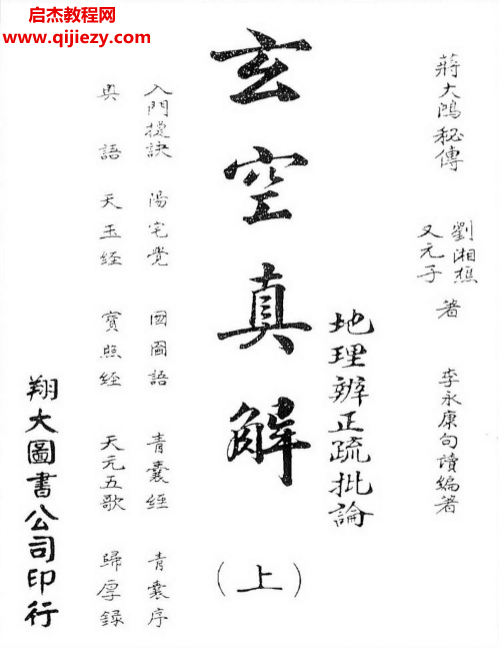 启杰教程网
www.qijiezy.com
蔣大鴻秘傳
劉湘樵
又元子
著
李永康句讀編著
地理辨正疏批論
玄空真解
（上）
入門捷訣 陽宅覺 國圖語 青囊經 青囊序
奥語 天玉経 寳照経 天元五歌 歸厚録
翔大圖書公司印行